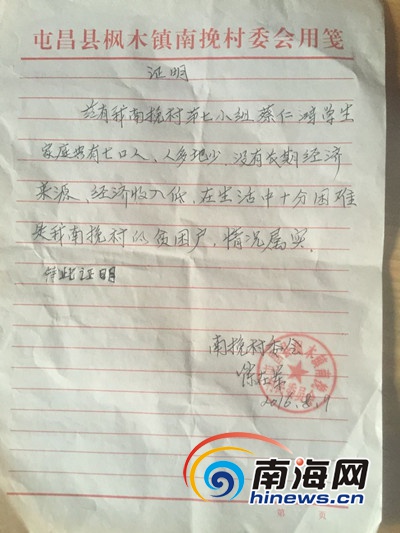 屯昌县枫木镇南挽村委会用笺
证明
兹有我南挽村第七小组蔡仁鸿学生
家庭共有七口人、人多地少、没有长期经济
来源、经济收入低、在生活中十分困难
是我南挽村的贫困户,情况属实.
特此证明
南挽村委会
2016.8.11
南海网
hinews.cn
第 页